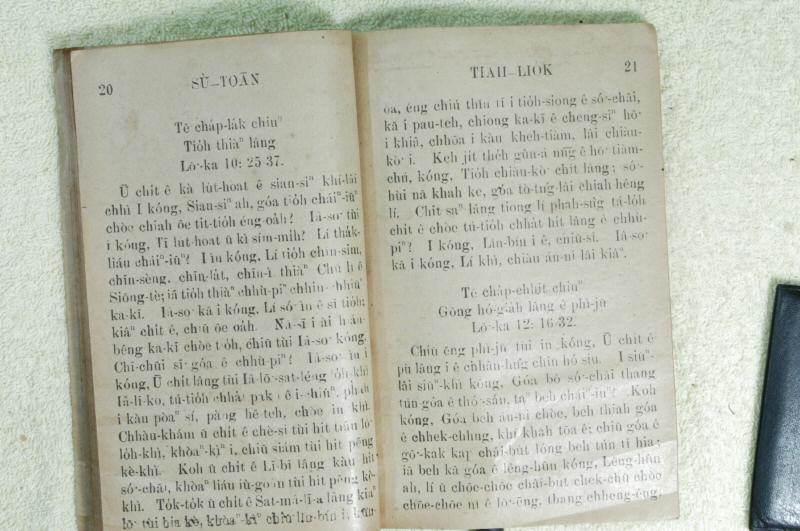 20
SÙ–TOĀN
Tē cháp-lák chiuⁿ
Tio̍h thiàⁿ lâng
Lō·-ka 10: 25-37.
Ū chi̍t ê kà lu̍t-hoat ê sian-siⁿ khí-lâi
chhì I kóng, Sian-siⁿ ah, góa tio̍h cháiⁿ-iūⁿ
chòe chiah ōe tit-tio̍h éng-oa̍h? Iâ-so· tùi
i kóng, Tī lu̍t-hoat ū kì sím-mi̍h? Lí tha̍k-
liáu cháiⁿ-iūⁿ? I ìn kóng, Lí tio̍h chīn-sim,
chīn-sèng, chīn-la̍t, chīn-ì thiàⁿ Chú lí ê
Siōng-tè; iā tio̍h thiàⁿ chhù-piⁿ
ka-kī. Iâ-so· kā i kóng, Lí só· ìn ê sī tio̍h;
kiâⁿ chit ê, chiū ōe oa̍h. Nā-sī i ài
bêng ka-kī chòe tio̍h, chiū tùi Iâ-so· kóng,
Chī-chūi sī góa ê chhù-piⁿ? Iâ-so· ìn i
kóng, Ū chi̍t lâng tùi Iâ-lō·-sat-léng lo̍h-khì
Iâ-lī-ko, tú-tio̍h chha̍t
i kàu pòaⁿ sí, pàng hê-teh, chòe in khì.
Chhàu-khám ū chi̍t ê chè-si tùi hit tiâu lō·
lo̍h-khì, khòaⁿ-kìⁿ i, chiū siám tùi hit pêng
kè-khì. Koh ū chi̍t ê Lī-bī lâng kàu hit
só·-chāi, khòaⁿ liáu iū-goân tùi hit pêng kè-
khì. To̍k-to̍k ū chi̍t ê Sat-má-lī-a lâng kiâⁿ
lō· tùi hia kè, khòaⁿ-kìⁿ chiū lîn-bín i,
TIAH–LIO̍K 21
óa, ēng chiú thīn tī i tio̍h-siong ê só·-chāi,
kā i pau-teh, chiong ka-kī ê cheng-siⁿ hō·
i khiâ, chhōa i kàu kheh-tiàm, lâi chiàu-
kò· i. Keh ji̍t the̍h gûn-á nn̄g ê hō· tiàm-
chú, kóng, Tio̍h chiàu-kò· chit lâng; só·-
hùi nā khah ke, góa tò-tńg-lâi chiah hêng
lí. Chit saⁿ lâng tiong lí phah-sǹg tá-lo̍h
chi̍t ê chòe tú-tio̍h chha̍t hit lâng ê chhù-
piⁿ? I kóng, Lîn-bín i ê, chiū-sī. Iâ-so·
kā i kóng, Lí khì, chiàu án-ni lâi kiâⁿ.
Tē cha̍p-chhit chiuⁿ
Gōng hó-gia̍h lâng ê phì-jū
Lō·-ka 12: 16-32.
Chiū ēng phì-jū tùi in kóng, Ū chi̍t ê
pù lâng i ê chhân-hn̂g chin hó siu. I siūⁿ-
lâi siūⁿ-khì kóng, Góa bô só·-chāi thang
tùn góa ê thó·-sán, taⁿ beh cháiⁿ-iūⁿ? Koh
kóng, Góa beh án-ni chòe, beh thiah góa
ê chhek-chhng, khí khah tōa ê; chiū góa ê
gō·-kak kap châi-bu̍t lóng beh tùn tī hia;
iā beh kā góa ê lêng-hûn kóng, Lêng-hûn
ah, lí ū chōe-chōe châi-bu̍t chek-chū chòe
chōe-chōe nî ê lō·-ēng, thang chheng-êng,